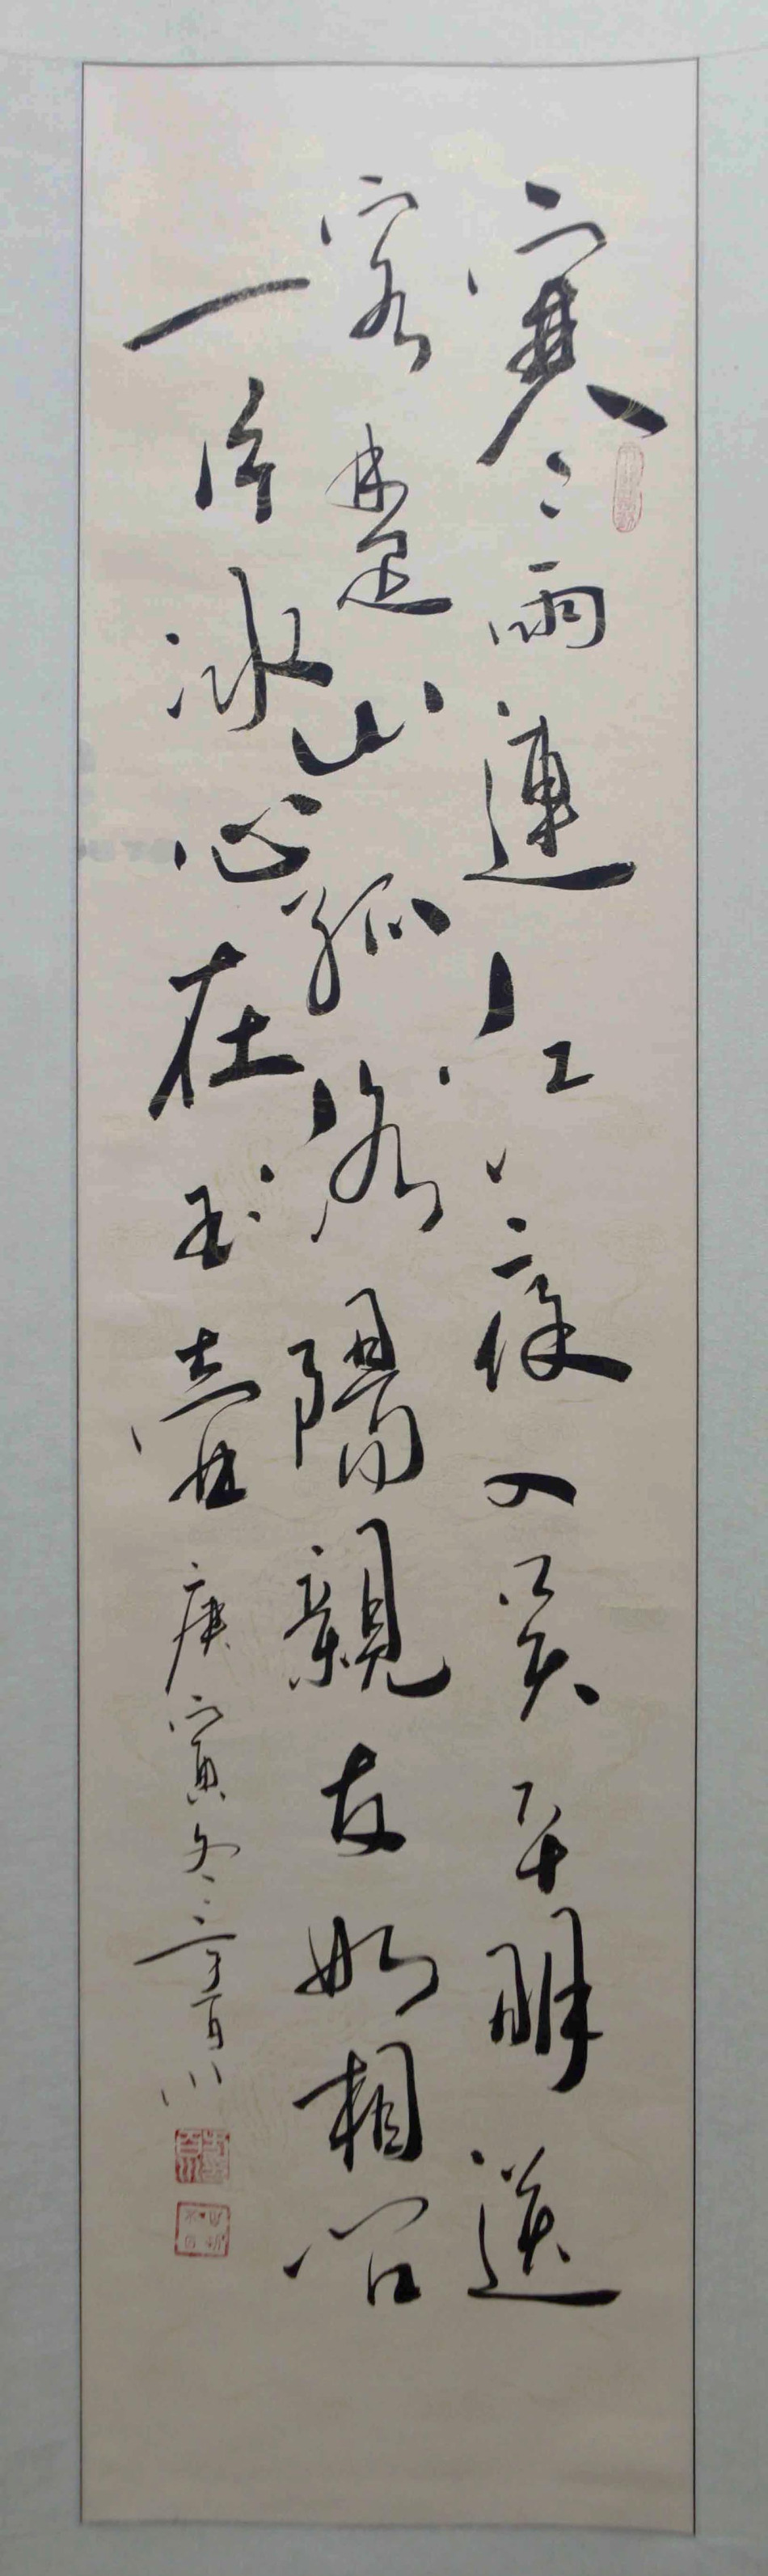 寒雨連江夜入吳平明送
客楚山孤洛陽親友如相問
一片冰心在玉壺庚寅冬百川